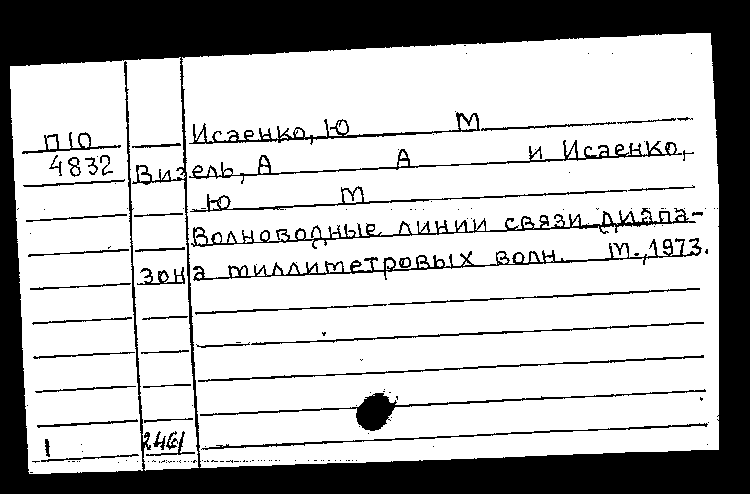 П10 Исаенко, Ю М
4832 Визель, А А и Исаенко,
Ю М
Волноводные линии связи диапа-
зона миллиметровых волн. М., 1973.
1 2461